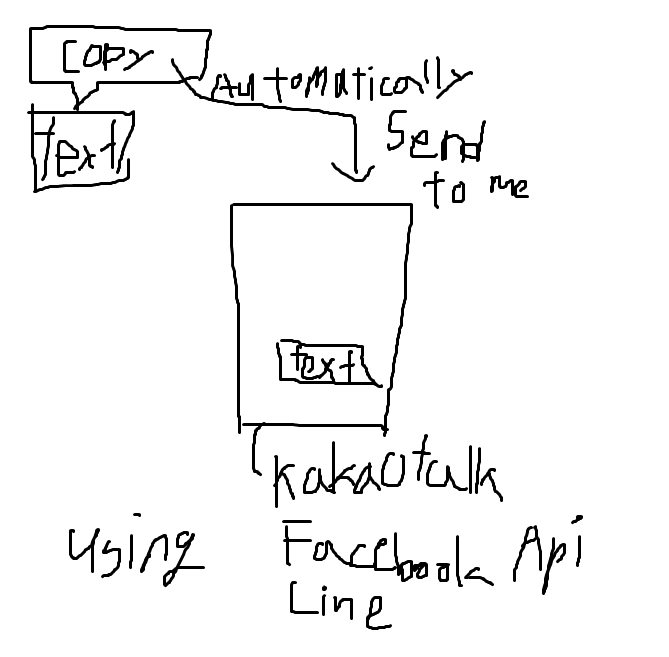 copy
Automatically
text
Send
to me
text
kakaotalk
using Facebook Api
Line